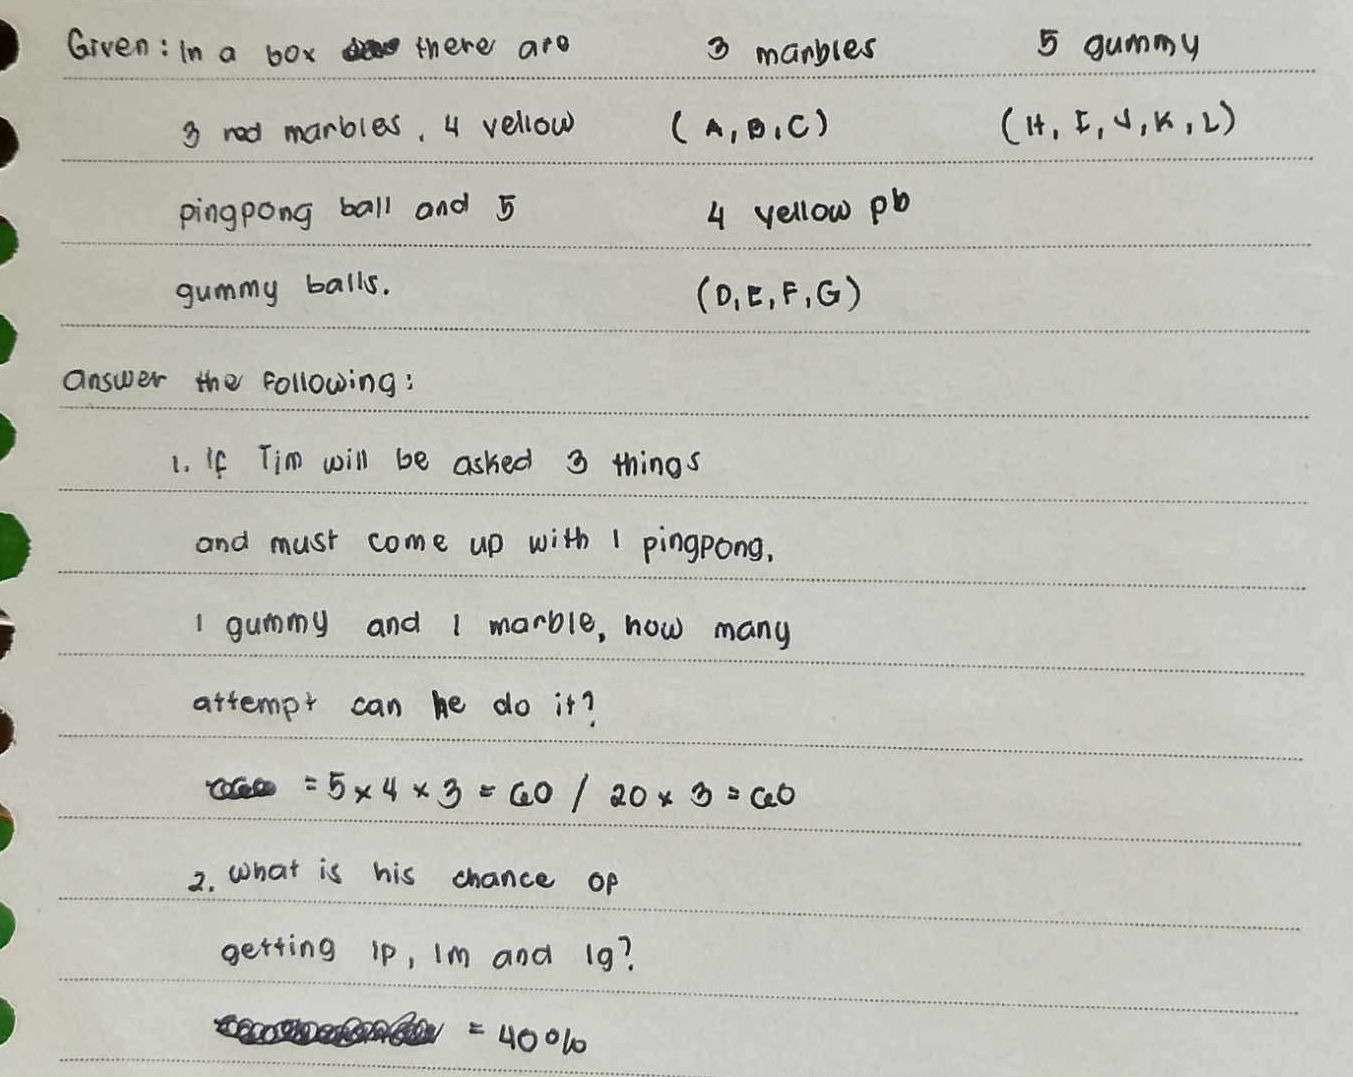 Given: In a box there are 3 marbles 5 gummy
3 red marbles, 4 yellow (A, B, C) (H, I, J, K, L)
pingpong ball and 5 4 yellow pb
gummy balls. (D, E, F, G)
answer the following:
1. If Tim will be asked 3 things
and must come up with 1 pingpong,
1 gummy and 1 marble, how many
attempt can he do it?
= 5 x 4 x 3 = 60 / 20 x 3 = 60
2. What is his chance of
getting 1p, 1m and 1g?
= 40%